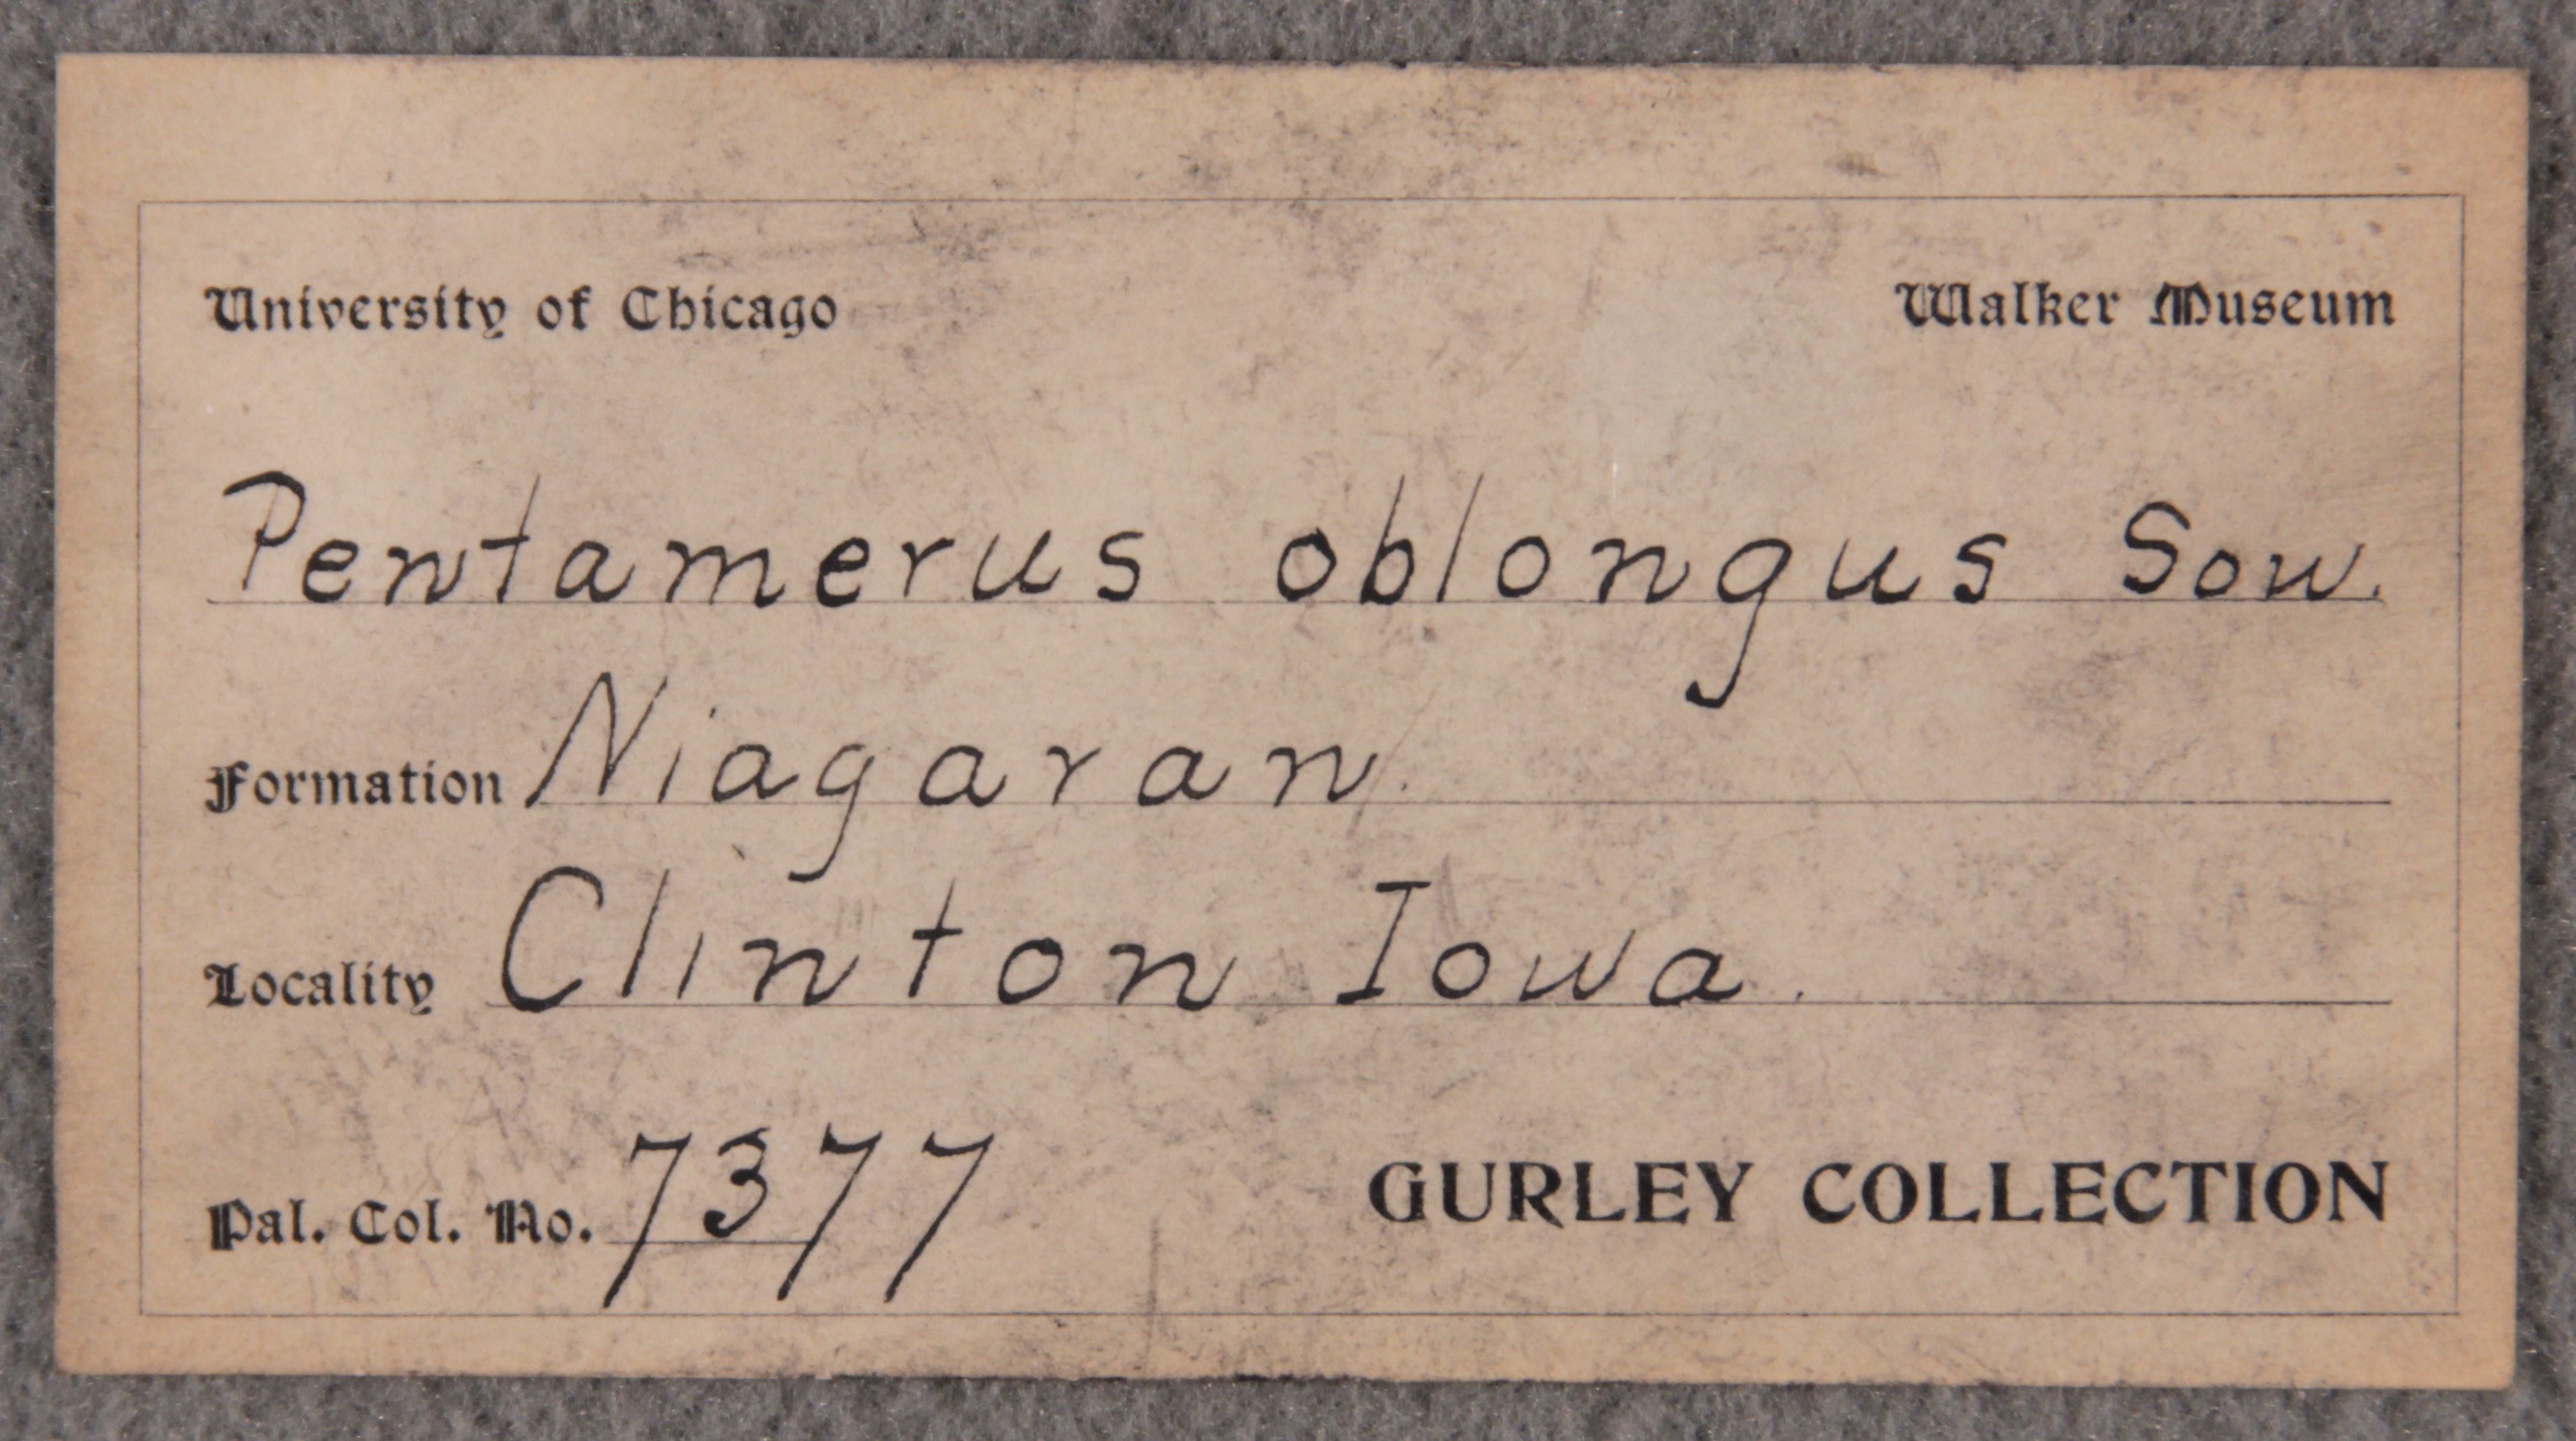 University of Chicago Walker Museum
Pentamerus oblongus Sow.
Formation Niagaran.
Locality Clinton Iowa.
Pal. Col. No. 7377 GURLEY COLLECTION